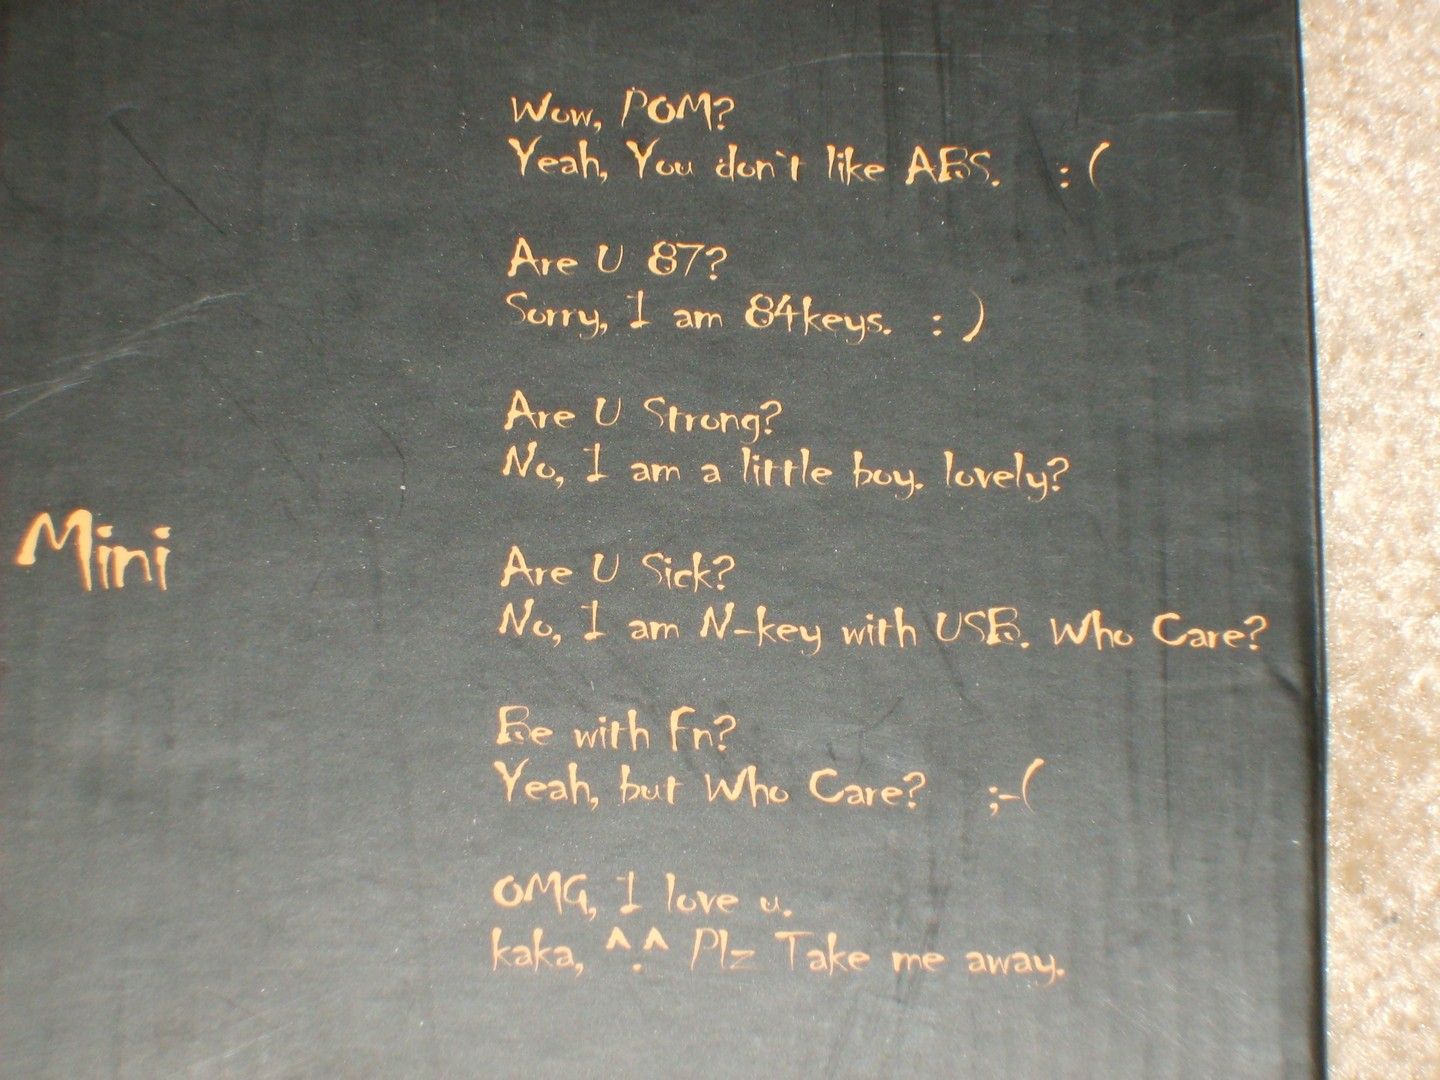 Wow, POM?
Yeah, You don`t like ABS. :(
Are U 87?
Sorry, I am 84keys. :)
Are U Strong?
No, I am a little boy. lovely?
Mini
Are U Sick?
No, I am N-key with USB. Who Care?
Be with Fn?
Yeah, but Who Care? ;-(
OMG, I love u.
kaka, ^.^ Plz Take me away.